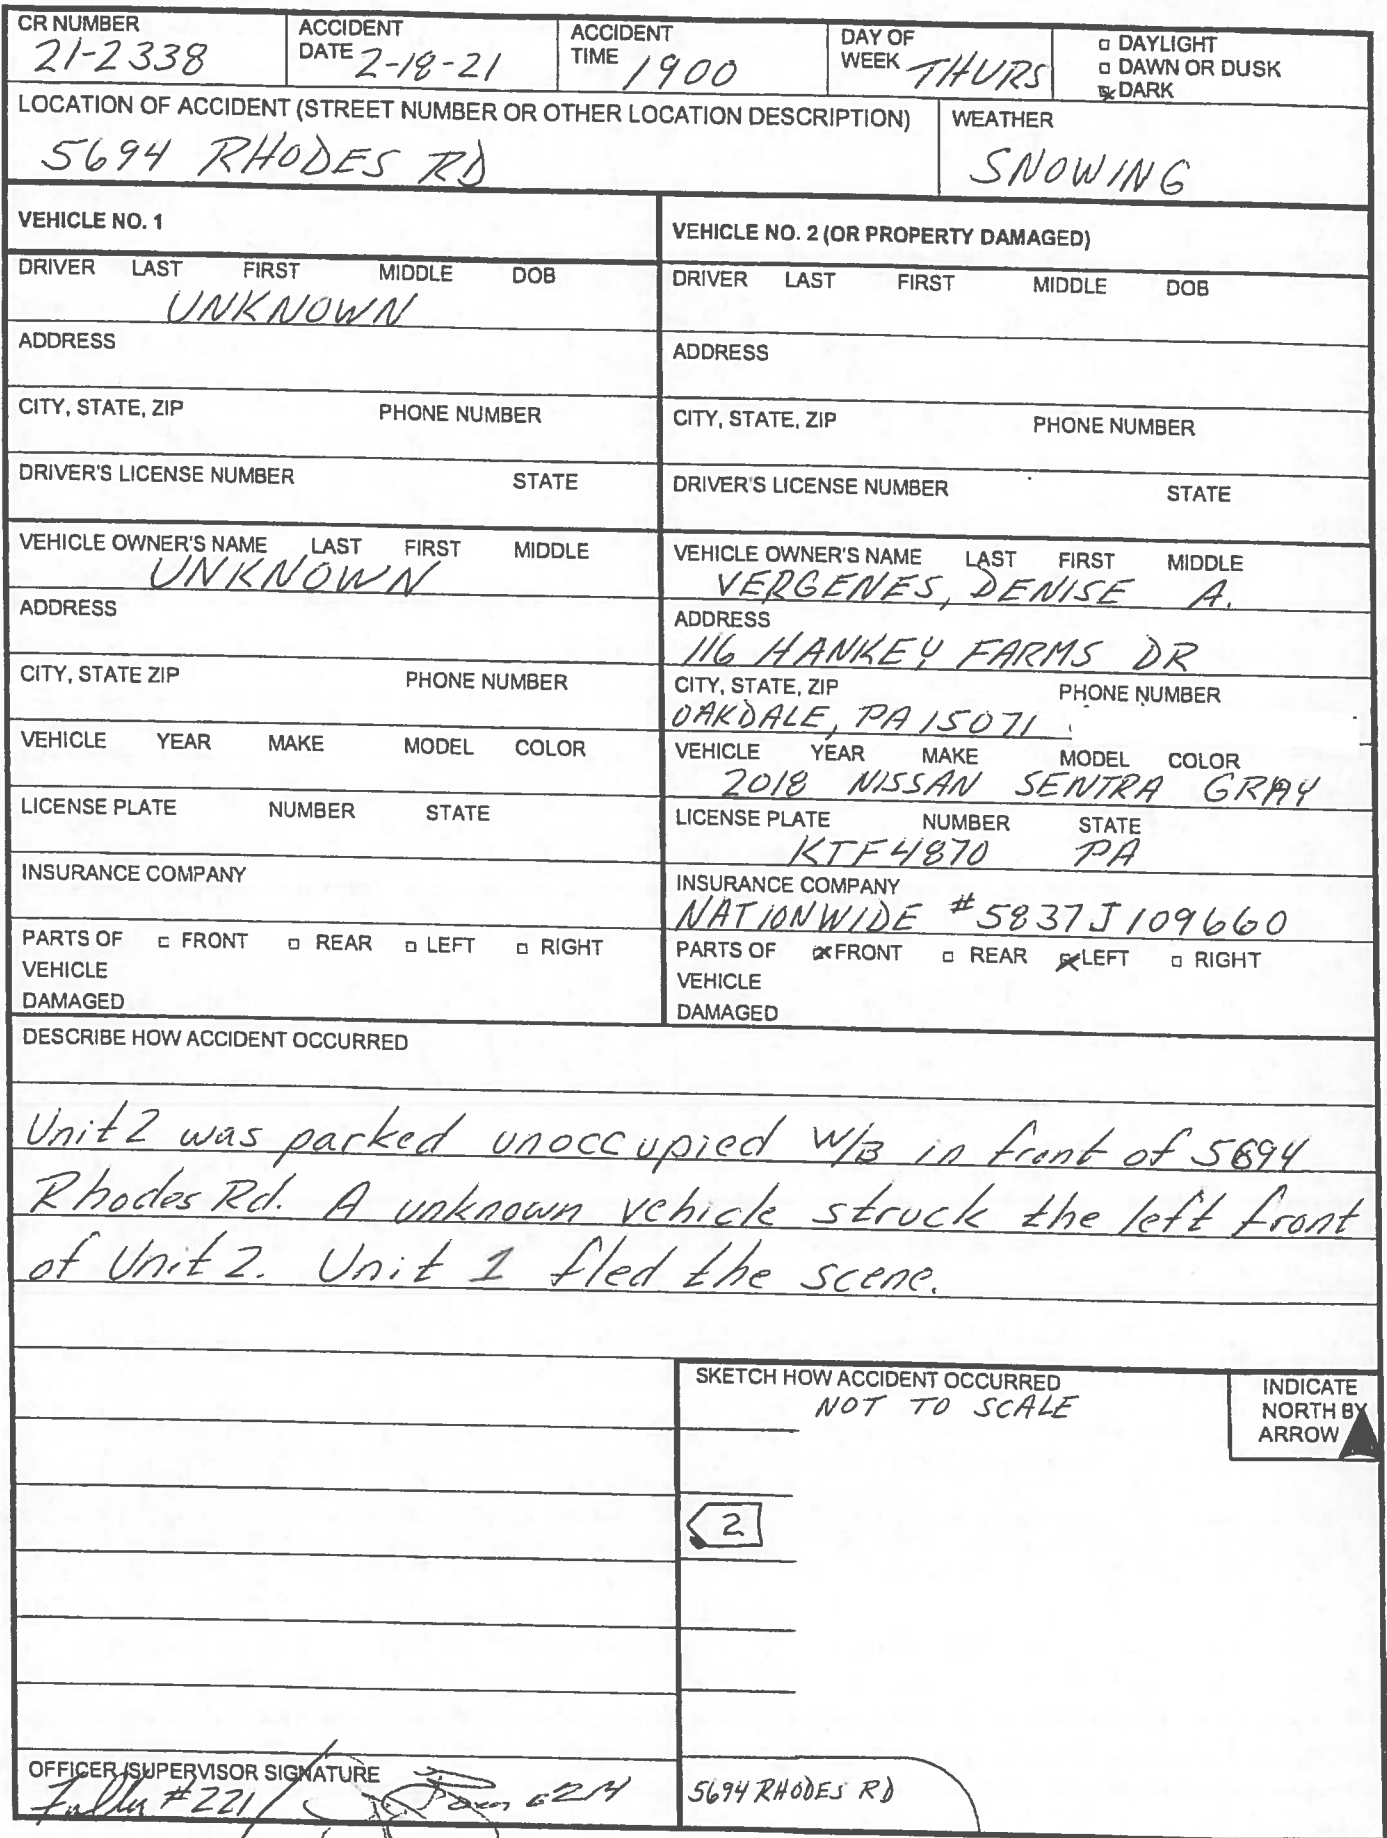 CR NUMBER 21-2338
ACCIDENT DATE 2-18-21
ACCIDENT TIME 1900
DAY OF WEEK THURS
DAYLIGHT
DAWN OR DUSK
DARK
LOCATION OF ACCIDENT (STREET NUMBER OR OTHER LOCATION DESCRIPTION)
5694 RHODES RD
WEATHER
SNOWING
VEHICLE NO. 1
DRIVER LAST FIRST MIDDLE DOB
UNKNOWN
ADDRESS
CITY, STATE, ZIP PHONE NUMBER
DRIVER'S LICENSE NUMBER STATE
VEHICLE OWNER'S NAME LAST FIRST MIDDLE
UNKNOWN
ADDRESS
CITY, STATE ZIP PHONE NUMBER
VEHICLE YEAR MAKE MODEL COLOR
LICENSE PLATE NUMBER STATE
INSURANCE COMPANY
PARTS OF VEHICLE DAMAGED FRONT REAR LEFT RIGHT
VEHICLE NO. 2 (OR PROPERTY DAMAGED)
DRIVER LAST FIRST MIDDLE DOB
ADDRESS
CITY, STATE, ZIP PHONE NUMBER
DRIVER'S LICENSE NUMBER STATE
VEHICLE OWNER'S NAME LAST FIRST MIDDLE
VERGENES, DENISE A.
ADDRESS
116 HANKEY FARMS DR
CITY, STATE, ZIP PHONE NUMBER
OAKDALE, PA 15071
VEHICLE YEAR MAKE MODEL COLOR
2018 NISSAN SENTRA GRAY
LICENSE PLATE NUMBER STATE
KTF4870 PA
INSURANCE COMPANY
NATIONWIDE #5837J109660
PARTS OF VEHICLE DAMAGED FRONT REAR LEFT RIGHT
DESCRIBE HOW ACCIDENT OCCURRED
Unit 2 was parked unoccupied W/B in front of 5694
Rhodes Rd. A unknown vehicle struck the left front
of Unit 2. Unit 1 fled the scene.
SKETCH HOW ACCIDENT OCCURRED
NOT TO SCALE
INDICATE NORTH BY ARROW
2
5694 RHODES RD
OFFICER/SUPERVISOR SIGNATURE
#221